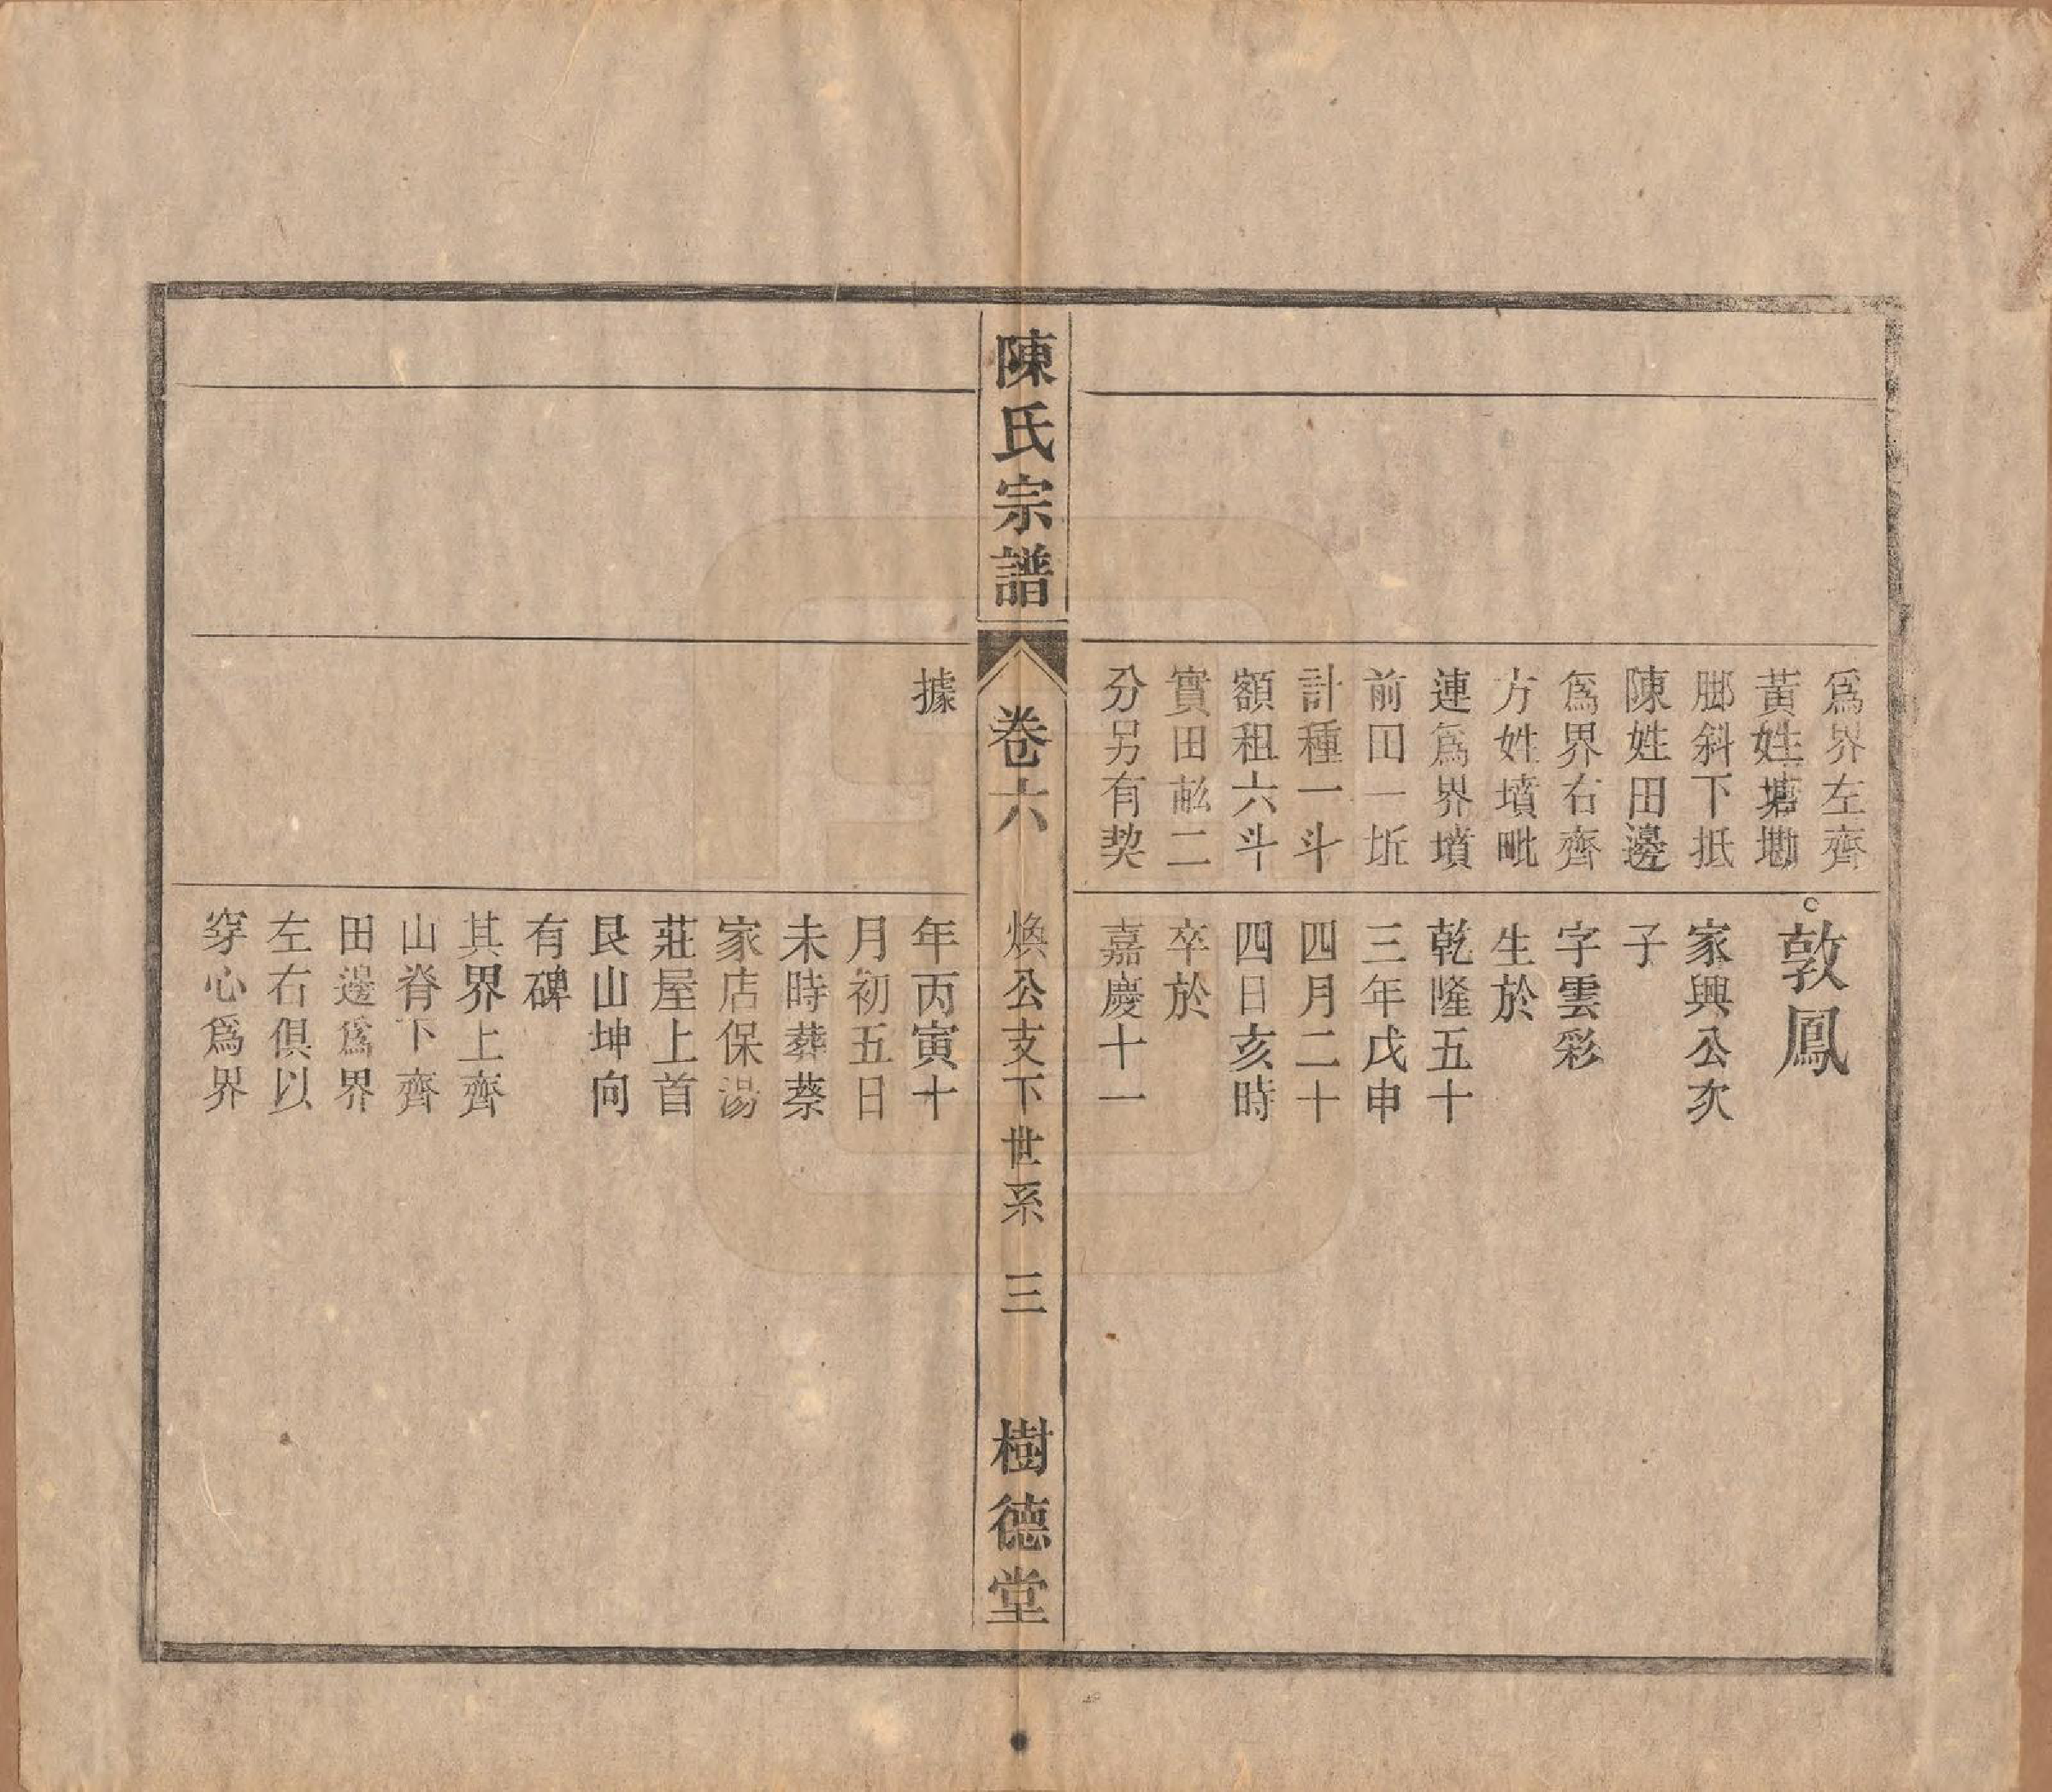 爲界左齊
黃姓塘墈
腳斜下抵
陳姓田邊
爲界右齊
方姓墳毗
連爲界墳
前田一坵
計種一斗
額租六斗
實田畝二
分另有契
敦鳳
家興公次
子
字雲彩
生於
乾隆五十
三年戊申
四月二十
四日亥時
卒於
嘉慶十一
陳氏宗譜
卷六
煥公支下世系
三
樹德堂
據
年丙寅十
月初五日
未時葬蔡
家店保湯
莊屋上首
艮山坤向
有碑
其界上齊
山脊下齊
田邊爲界
左右俱以
穿心爲界